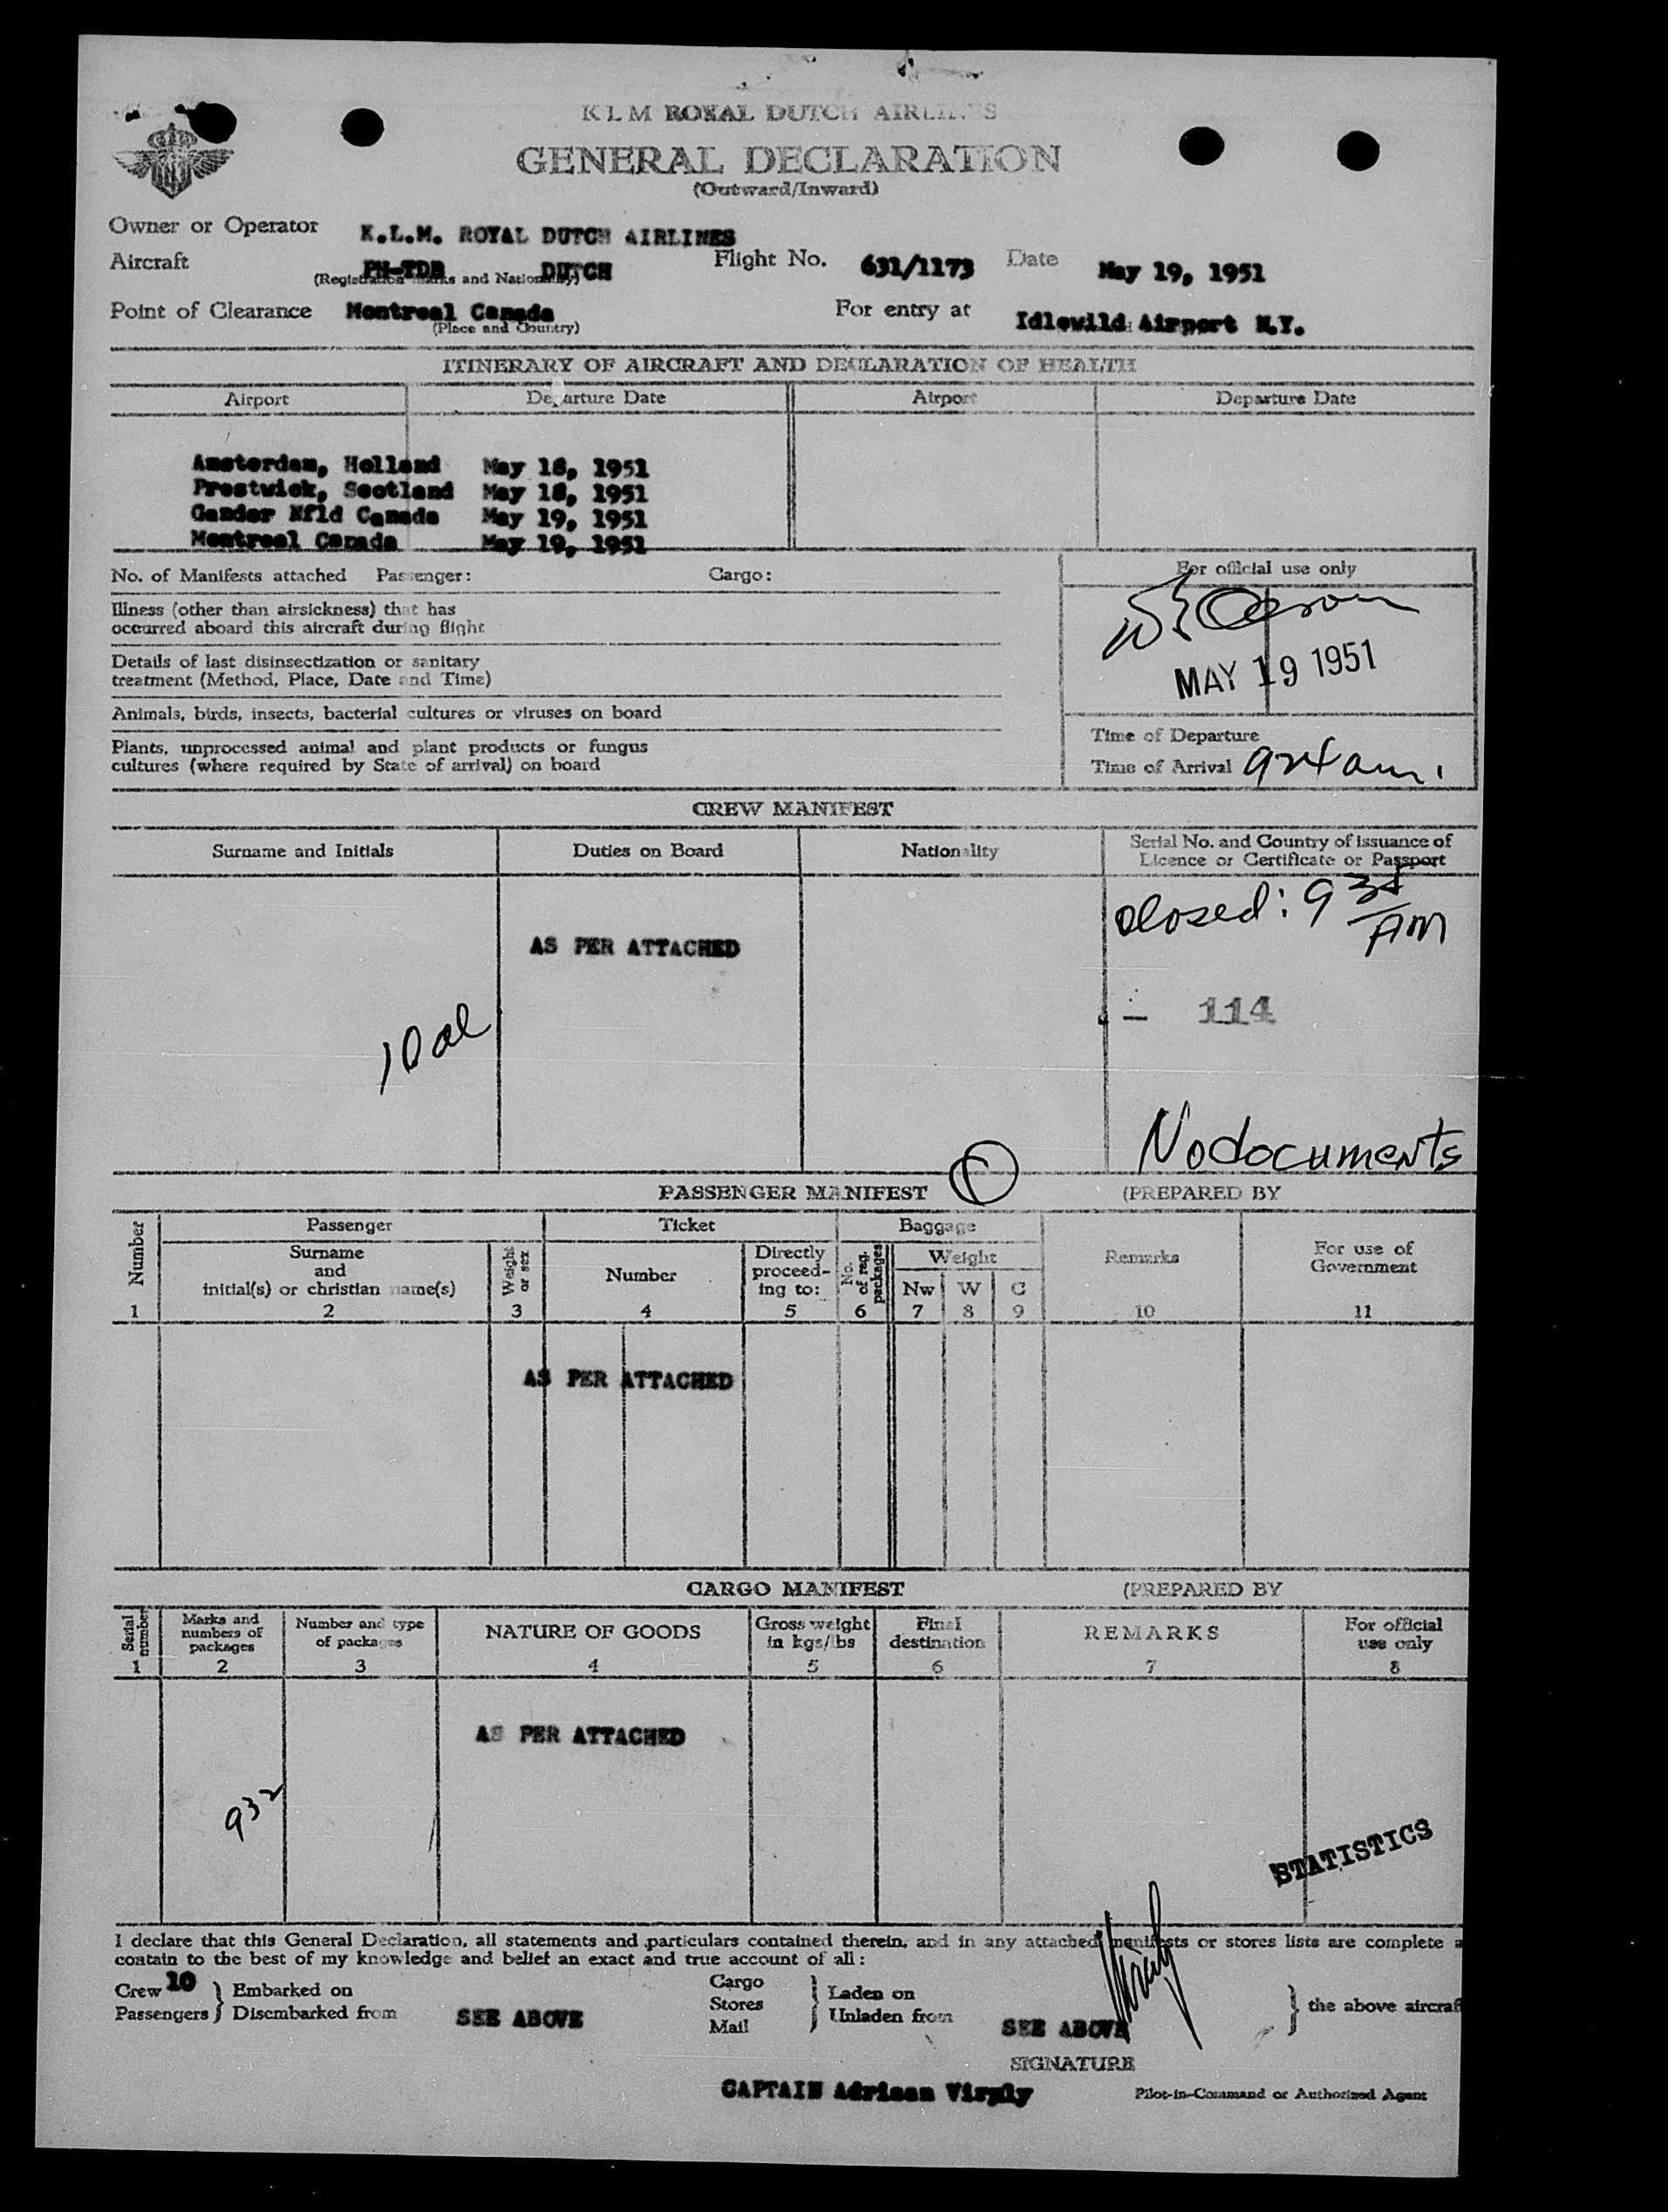 KLM ROYAL DUTCH AIRLINES
GENERAL DECLARATION
(Outward/Inward)
Owner or Operator K.L.M. ROYAL DUTCH AIRLINES
Aircraft PH-TDB DUTCH Flight No. 631/1173 Date May 19, 1951
(Registration marks and Nationality)
Point of Clearance Montreal Canada For entry at Idlewild Airport N.Y.
(Place and Country)
ITINERARY OF AIRCRAFT AND DECLARATION OF HEALTH
Airport Departure Date Airport Departure Date
Amsterdam, Holland May 18, 1951
Prestwick, Scotland May 18, 1951
Gander Nfld Canada May 19, 1951
Montreal Canada May 19, 1951
No. of Manifests attached Passenger: Cargo:
For official use only
Illness (other than airsickness) that has
occurred aboard this aircraft during flight
Details of last disinsectization or sanitary
treatment (Method, Place, Date and Time)
MAY 19 1951
Animals, birds, insects, bacterial cultures or viruses on board
Plants, unprocessed animal and plant products or fungus
cultures (where required by State of arrival) on board
Time of Departure
Time of Arrival 924 am.
CREW MANIFEST
Surname and Initials Duties on Board Nationality Serial No. and Country of issuance of
Licence or Certificate or Passport
closed: 9 35
AM
AS PER ATTACHED
114
10 al
No documents
PASSENGER MANIFEST (PREPARED BY
Number Passenger Ticket Baggage
Surname
and
initial(s) or christian name(s)
Weight
or sex
Number
Directly
proceed-
ing to:
No.
of reg.
packages
Weight
Nw W C
Remarks
For use of
Government
1 2 3 4 5 6 7 8 9 10 11
AS PER ATTACHED
CARGO MANIFEST (PREPARED BY
Serial
number
Marks and
numbers of
packages
Number and type
of packages
NATURE OF GOODS
Gross weight
in kgs/lbs
Final
destination
REMARKS
For official
use only
1 2 3 4 5 6 7 8
AS PER ATTACHED
932
STATISTICS
I declare that this General Declaration, all statements and particulars contained therein, and in any attached manifests or stores lists are complete a
contain to the best of my knowledge and belief an exact and true account of all:
Crew 10 Embarked on Cargo Laden on
Passengers Disembarked from SEE ABOVE Stores Unladen from SEE ABOVE the above aircraf
Mail
SIGNATURE
CAPTAIN Adriaan Viruly Pilot-in-Command or Authorized Agent